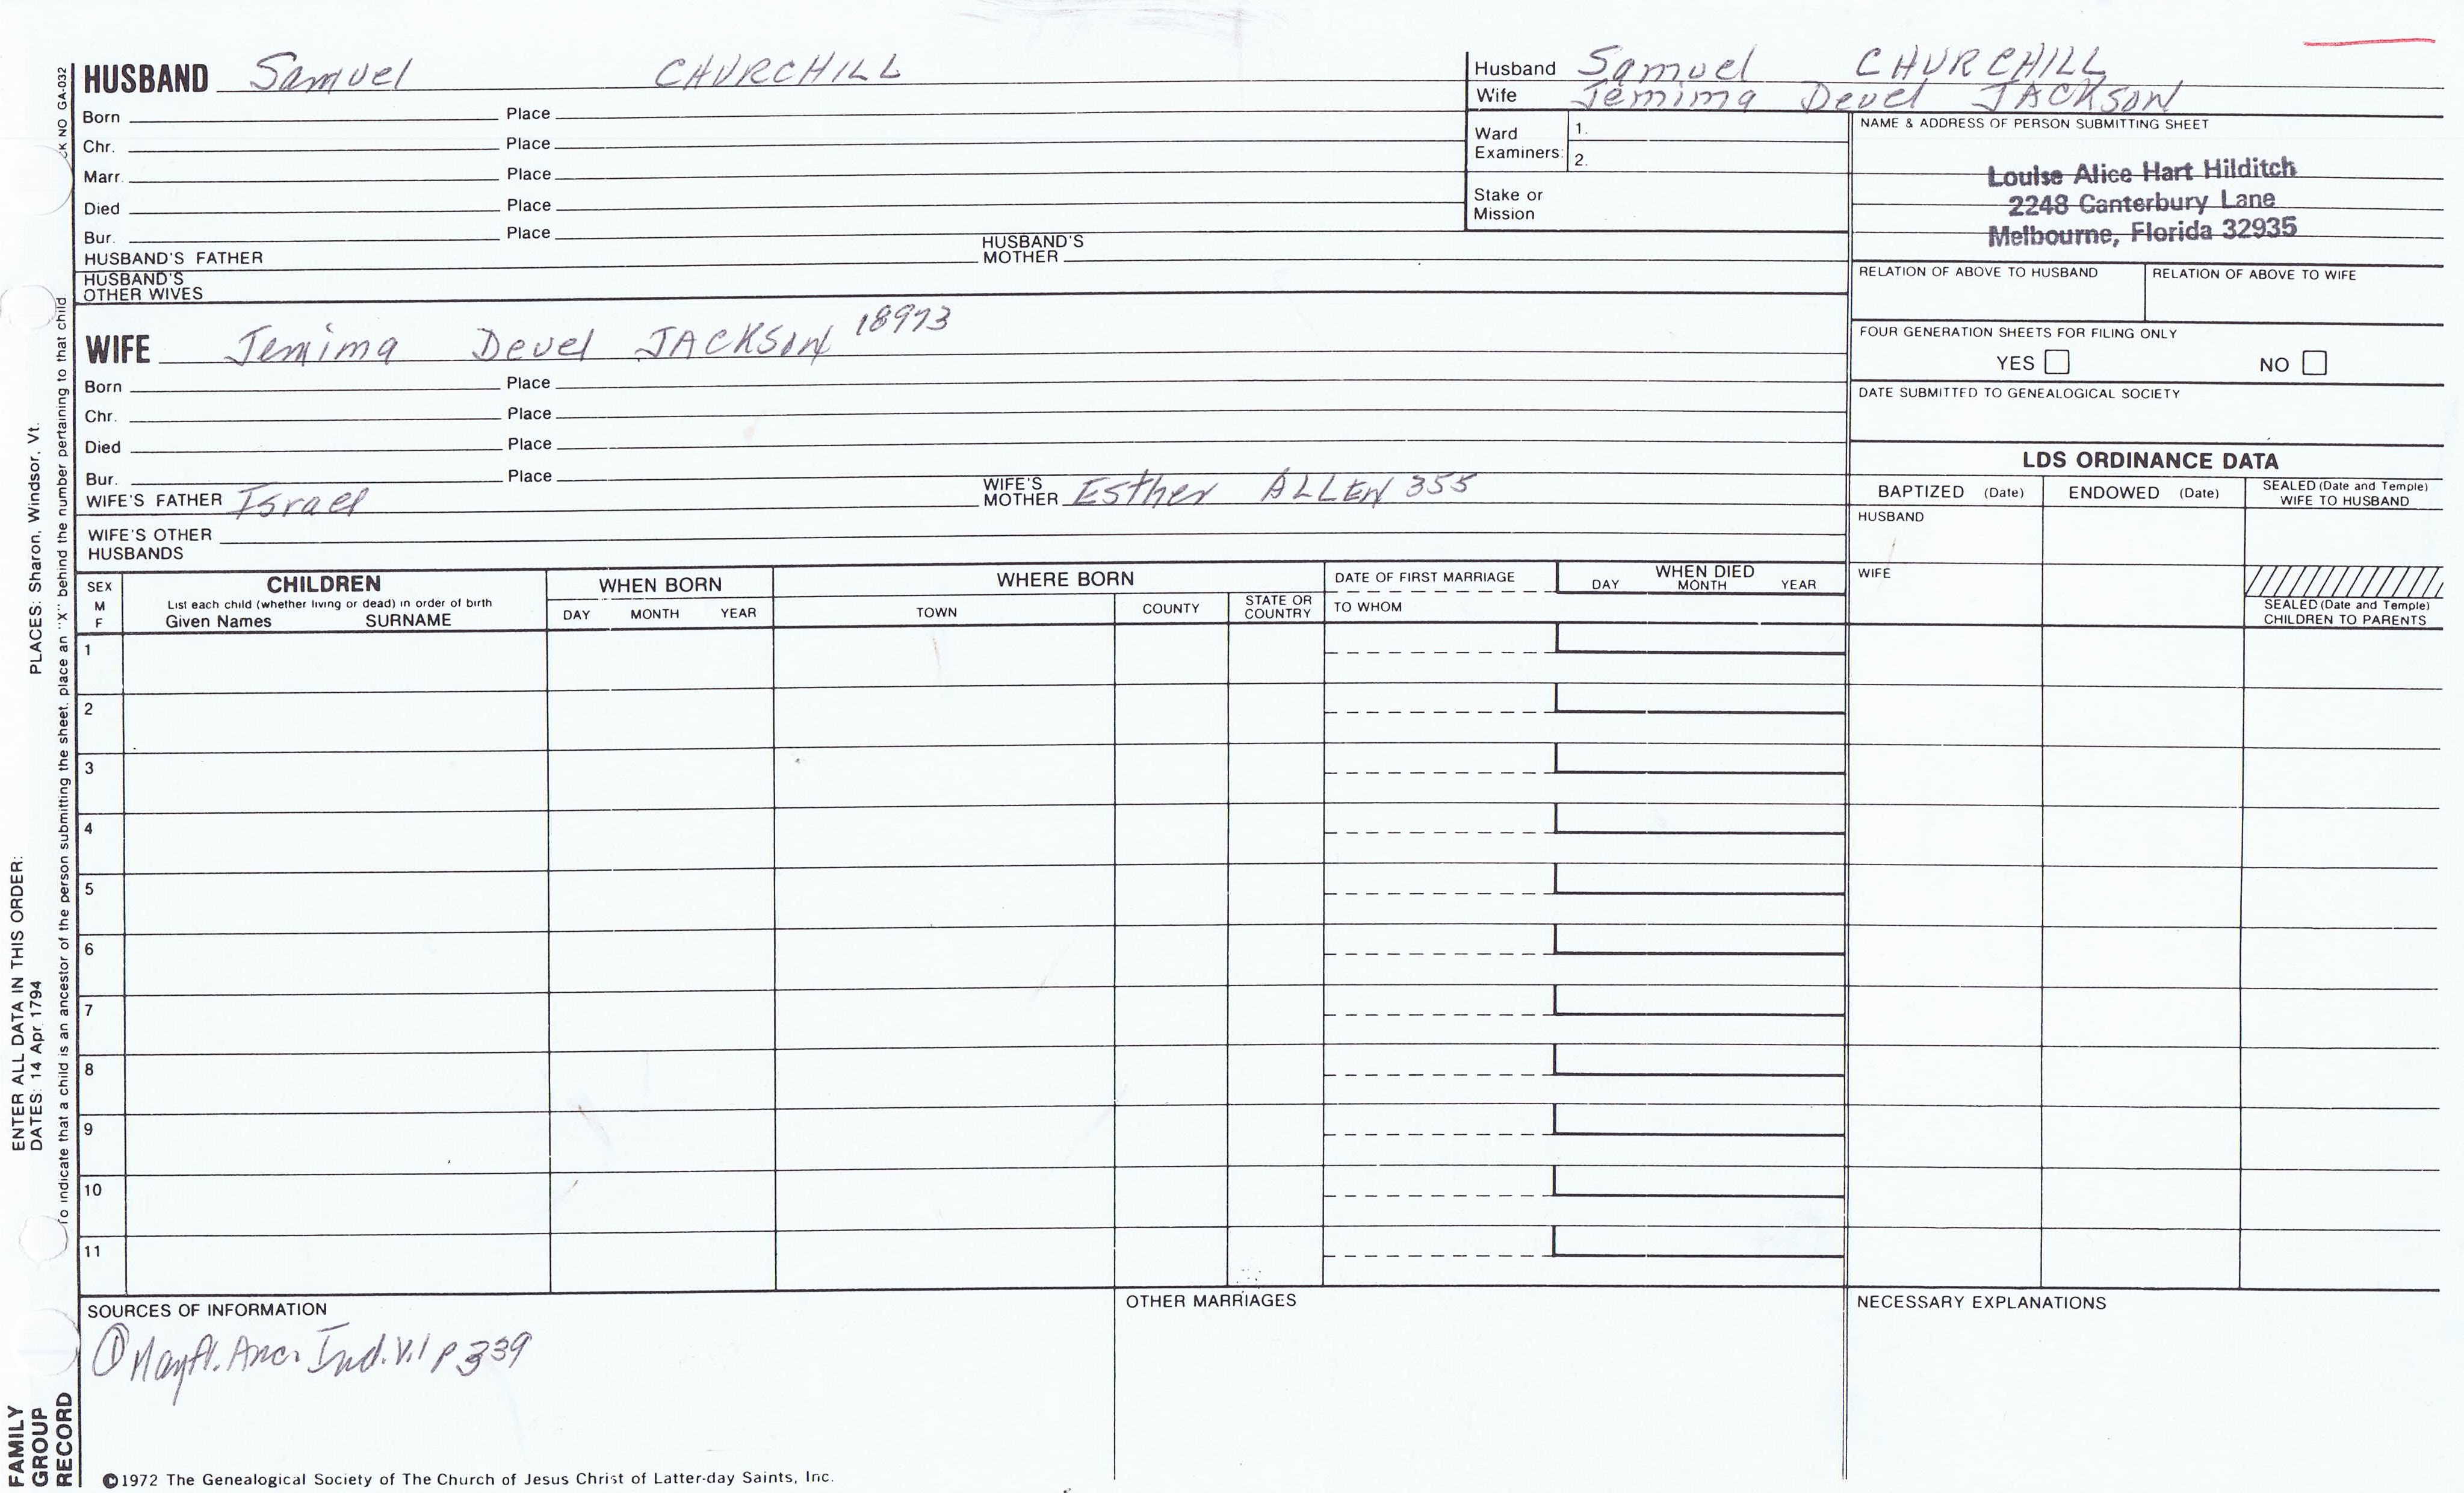 HUSBAND Samuel CHURCHILL
Born Place
Chr. Place
Marr. Place
Died Place
Bur. Place
HUSBAND'S FATHER HUSBAND'S MOTHER
HUSBAND'S OTHER WIVES
WIFE Jemima Devel JACKSON 18973
Born Place
Chr. Place
Died Place
Bur. Place
WIFE'S FATHER Israel WIFE'S MOTHER Esther ALLEN 355
WIFE'S OTHER
HUSBANDS
Husband Samuel CHURCHILL
Wife Jemima Devel JACKSON
Ward Examiners: 1.
2.
Stake or
Mission
NAME & ADDRESS OF PERSON SUBMITTING SHEET
Louise Alice Hart Hilditch
2248 Canterbury Lane
Melbourne, Florida 32935
RELATION OF ABOVE TO HUSBAND RELATION OF ABOVE TO WIFE
FOUR GENERATION SHEETS FOR FILING ONLY
YES NO
DATE SUBMITTED TO GENEALOGICAL SOCIETY
LDS ORDINANCE DATA
BAPTIZED (Date) ENDOWED (Date) SEALED (Date and Temple) WIFE TO HUSBAND
HUSBAND
WIFE
SEALED (Date and Temple)
CHILDREN TO PARENTS
SEX
M
F
CHILDREN
List each child (whether living or dead) in order of birth
Given Names SURNAME
WHEN BORN
DAY MONTH YEAR
WHERE BORN
TOWN COUNTY STATE OR COUNTRY
DATE OF FIRST MARRIAGE
TO WHOM
WHEN DIED
DAY MONTH YEAR
1
2
3
4
5
6
7
8
9
10
11
SOURCES OF INFORMATION
① Mayfl. Anc. Ind. V.1 P 339
OTHER MARRIAGES
NECESSARY EXPLANATIONS
©1972 The Genealogical Society of The Church of Jesus Christ of Latter-day Saints, Inc.
FAMILY
GROUP
RECORD
ENTER ALL DATA IN THIS ORDER:
DATES: 14 Apr 1794 PLACES: Sharon, Windsor, Vt.
To indicate that a child is an ancestor of the person submitting the sheet, place an "X" behind the number pertaining to that child
NO GA-032